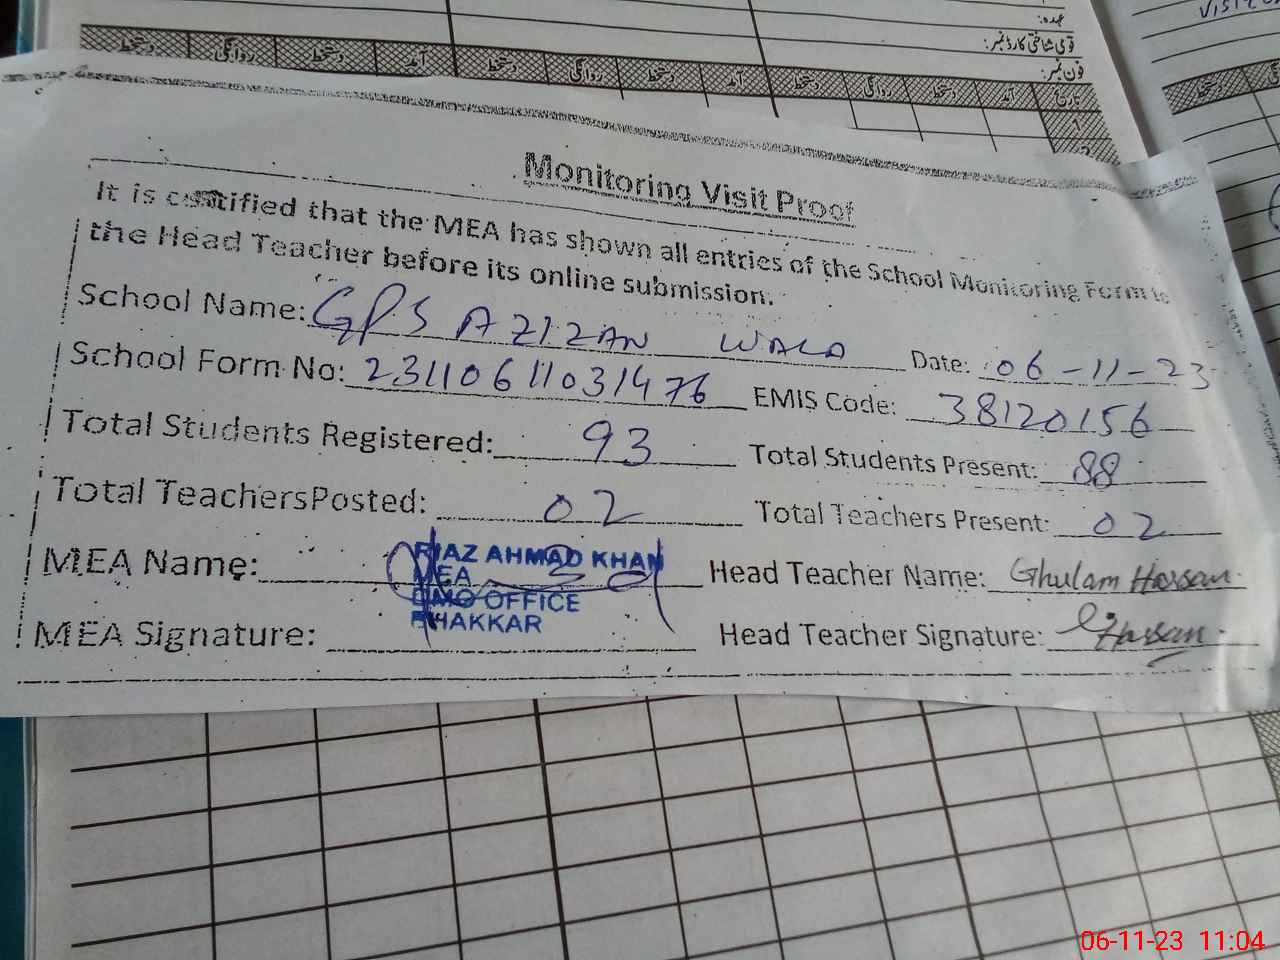 عہدہ:
قومی شناختی کارڈ نمبر:
فون نمبر:
تاریخ آمد دستخط روانگی دستخط آمد دستخط روانگی دستخط آمد دستخط روانگی دستخط
1
Monitoring Visit Proof
It is certified that the MEA has shown all entries of the School Monitoring Form to
the Head Teacher before its online submission.
School Name: GPS AZIZAN WALA Date: 06-11-23
School Form No: 23110611031476 EMIS Code: 38120156
Total Students Registered: 93 Total Students Present: 88
Total TeachersPosted: 02 Total Teachers Present: 02
MEA Name: RIAZ AHMAD KHAN Head Teacher Name: Ghulam Hassan
MEA
DMO OFFICE
BHAKKAR
MEA Signature: Head Teacher Signature: Hassan
06-11-23 11:04